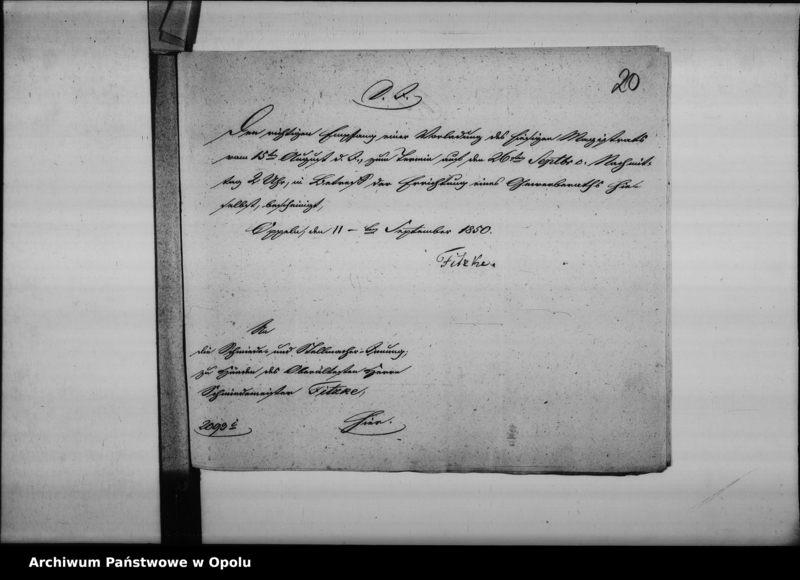 20
Den richtigen Empfang einer Vorladung des hiesigen Magistrats
vom 15ten August d. J., zum Termin auf den 26ten Septbr c. Nachmit-
tag 2 Uhr, in Betreff der Errichtung eines Gewerberaths hie-
selbst, bescheinigt,
Oppeln, den 11ten September 1850.
Fitzke.
An
die Schmiede- und Stellmacher-Innung,
zu Händen des Oberältesten Herrn
Schmiedemeister Fitzke,
Hier.
Archiwum Państwowe w Opolu